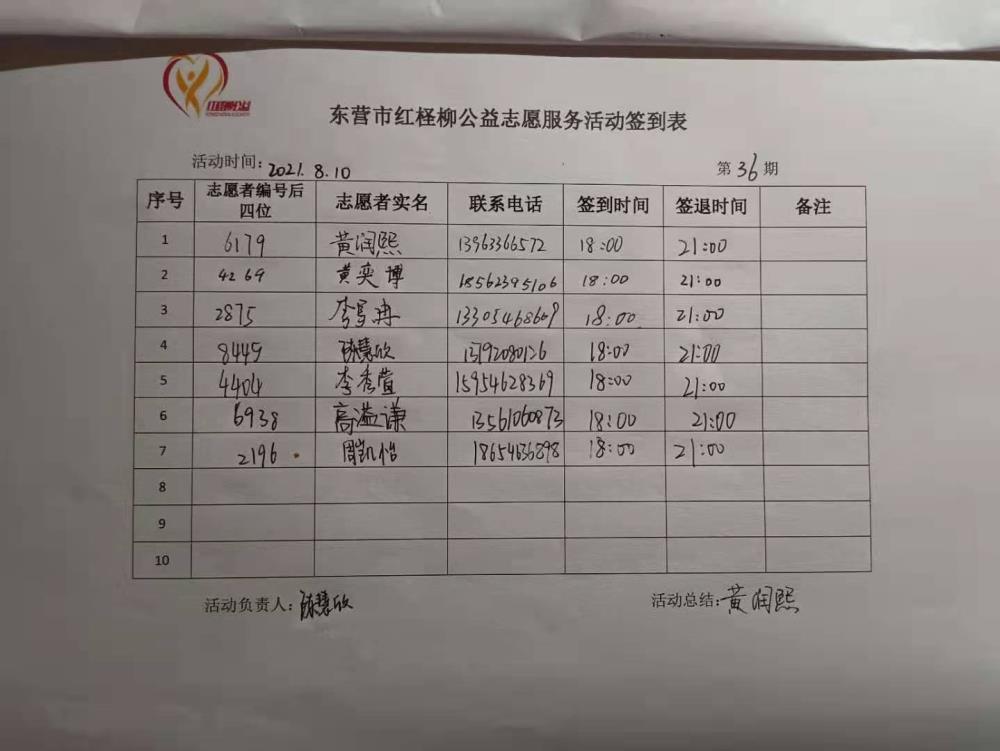 红柽柳公益
东营市红柽柳公益志愿服务活动签到表
活动时间：2021.8.10 第36期
序号 志愿者编号后四位 志愿者实名 联系电话 签到时间 签退时间 备注
1 6179 黄润熙 13963366572 18:00 21:00
2 4269 黄奕博 18562395106 18:00 21:00
3 2875 李 冉 13305468669 18:00 21:00
4 8445 陈慧欣 13792080126 18:00 21:00
5 4404 李秀萱 15954628369 18:00 21:00
6 6938 高溢谦 13561060873 18:00 21:00
7 2196 周凯怡 18654636898 18:00 21:00
8
9
10
活动负责人：陈慧欣 活动总结：黄润熙